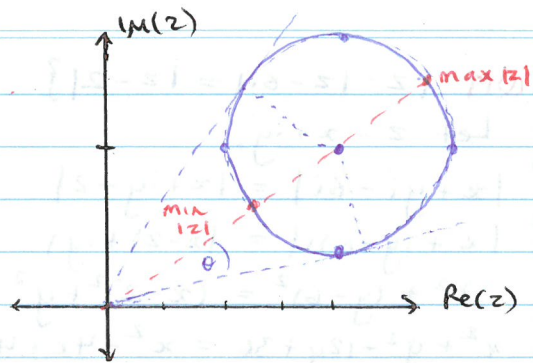 Im(z)
max |z|
min
|z|
θ
Re(z)